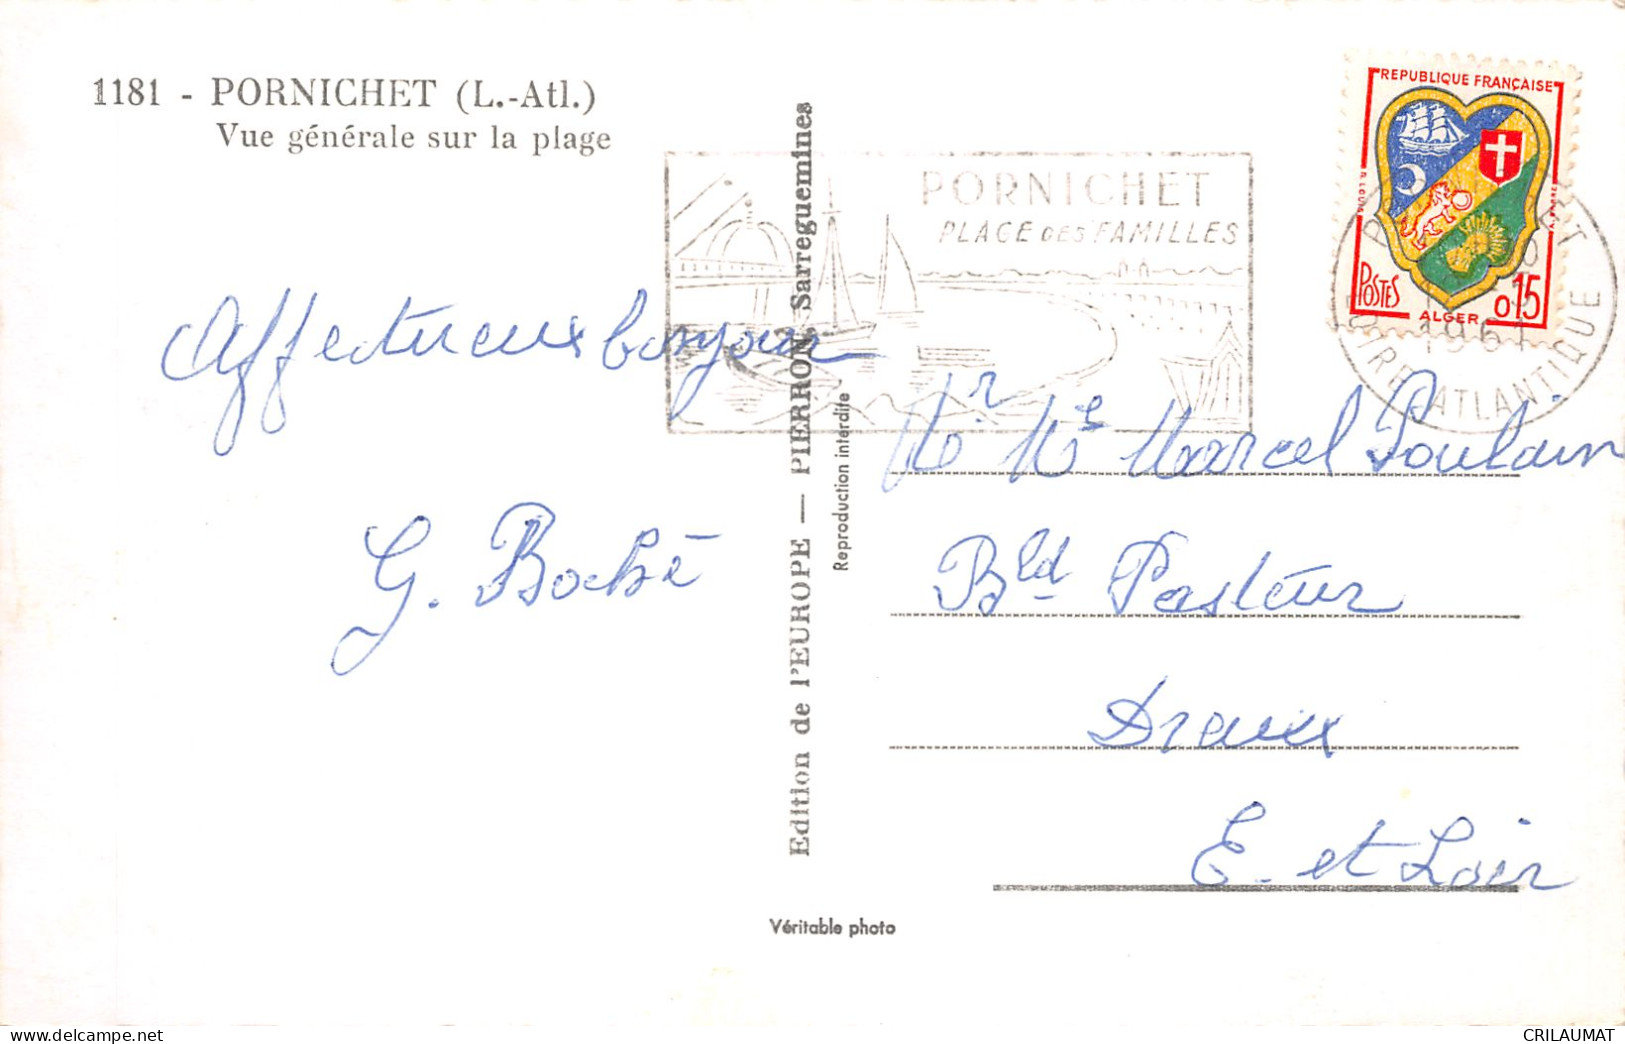 1181 - PORNICHET (L.-Atl.)
Vue générale sur la plage
PORNICHET
PLAGE DES FAMILLES
REPUBLIQUE FRANÇAISE
POSTES
ALGER
0,15
1961
LOIRE ATLANTIQUE
Affectueux bonjour
G. Boché
Edition de l'EUROPE — PIERRON, Sarreguemines
Reproduction interdite
Mr Me Marcel Poulain
Bld Pasteur
Dreux
E. et Loir
Véritable photo
CRILAUMAT